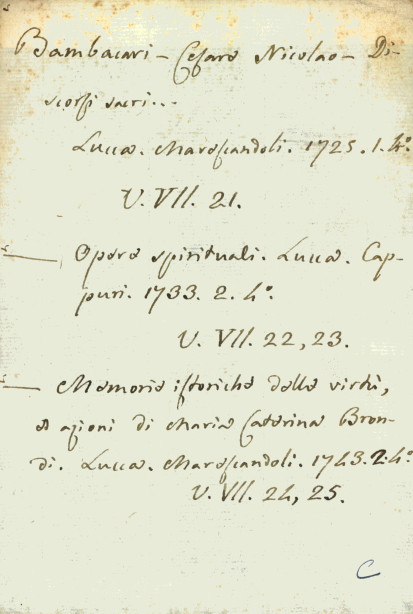 Bambacari – Cesare Nicolao – Di-
scorsi sacri...
Lucca. Marescandoli. 1725. 1. 4°.
V. VII. 21.
— Opere spirituali. Lucca. Cap-
puri. 1733. 2. 4°.
V. VII. 22, 23.
— Memorie istoriche delle virtù,
ed azioni di Maria Caterina Bron-
di. Lucca. Marescandoli. 1743. 2. 4°.
V. VII. 24, 25.
C